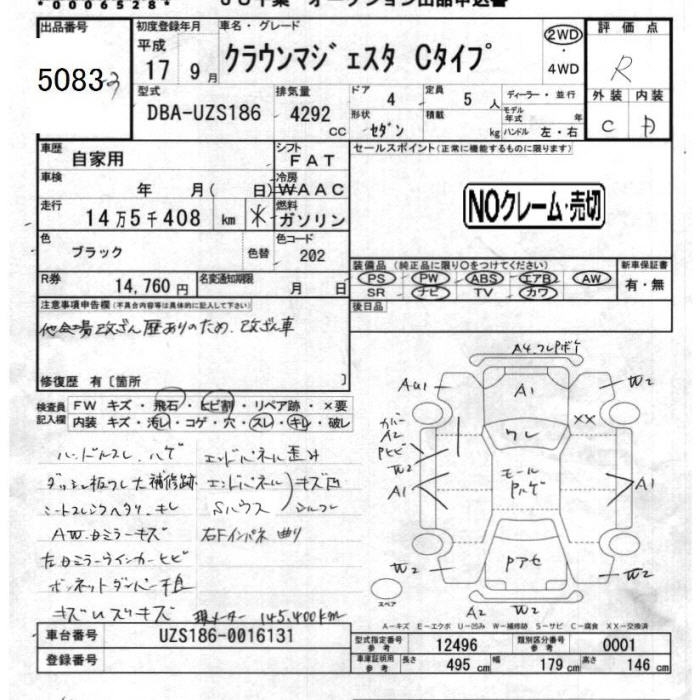 *0006528*
JU千葉 オークション出品申込書
出品番号
50833
初度登録年月
平成
17 9月
車名・グレード
クラウンマジェスタ Cタイプ
2WD
・
4WD
評価点
R
外装 内装
C D
型式
DBA-UZS186
排気量
4292
CC
ドア
4
定員
5人
形状
セダン
積載
kg
ディーラー・並行
モデル年式 年
ハンドル 左・右
車歴
自家用
シフト
FAT
車検
年 月( 日)
冷房
WAAC
走行
14万5千408 km
*
燃料
ガソリン
色
ブラック
色替
色コード
202
R券
14,760円
名変通知期限
月 日
セールスポイント(正常に機能するものに限ります)
NOクレーム・売切
装備品(純正品に限り○をつけてください)
PS PW ABS エアB AW
SR ナビ TV カワ
新車保証書
有・無
後日品
注意事項申告欄(不具合内容等は具体的に記入して下さい)
他会場改ざん歴ありのため、改ざん車
修復歴 有〔箇所 〕
検査員
記入欄
FW キズ・飛石・ヒビ割・リペア跡・×要
内装 キズ・汚レ・コゲ・穴・スレ・キレ・破レ
ハンドルスレ、ハゲ
ダッシュ板ワレ大補修跡
シートスレシワヘタリ、キレ
AW、ミラーキズ
左ミラーウインカーヒビ
ボンネットダンパー不良
キズUスリキズ
エンドパネル歪み
エンドパネル
Sハウス
キズ凹
右Fインパネ曲り
現メーター 145,400km
A4.ワレPボケ
AU1
A1
W2
カバー
A2
Pヒビ
W2
A1
XX
ワレ
モール
Pハゲ
A1
W2
Pアセ
W2
A2 W2
スペア
A-キズ E-エクボ U-凹み W-補修跡 S-サビ C-腐食 XX-交換済
車台番号
UZS186-0016131
登録番号
型式指定番号
参考
12496
類別区分番号
参考
0001
車庫証明用
参考
長さ 495cm 幅 179cm 高さ 146cm